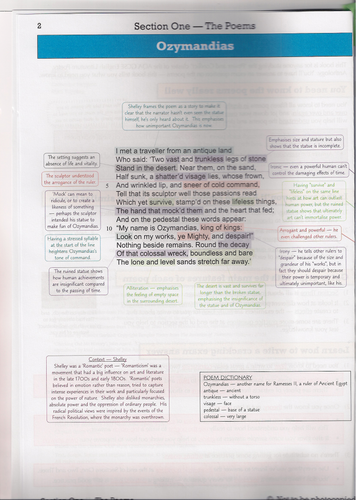 2
Section One — The Poems
Ozymandias
Shelley frames the poem as a story to make it
clear that the narrator hasn't even seen the statue
himself, he's only heard about it. This emphasises
how unimportant Ozymandias is now.
Emphasises size and stature but also
shows that the statue is incomplete.
The setting suggests an
absence of life and vitality.
The sculptor understood
the arrogance of the ruler.
'Mock' can mean to
ridicule, or to create a
likeness of something
— perhaps the sculptor
intended the statue to
make fun of Ozymandias.
Having a stressed syllable
at the start of the line
heightens Ozymandias's
tone of command.
The ruined statue shows
how human achievements
are insignificant compared
to the passing of time.
I met a traveller from an antique land
Who said: 'Two vast and trunkless legs of stone
Stand in the desert. Near them, on the sand,
Half sunk, a shatter'd visage lies, whose frown,
5 And wrinkled lip, and sneer of cold command,
Tell that its sculptor well those passions read
Which yet survive, stamp'd on these lifeless things,
The hand that mock'd them and the heart that fed;
And on the pedestal these words appear:
10 "My name is Ozymandias, king of kings:
Look on my works, ye Mighty, and despair!"
Nothing beside remains. Round the decay
Of that colossal wreck, boundless and bare
The lone and level sands stretch far away.'
Irony — even a powerful human can't
control the damaging effects of time.
Having "survive" and
"lifeless" on the same line
hints at how art can outlast
human power, but the ruined
statue shows that ultimately
art can't immortalise power.
Arrogant and powerful — he
even challenged other rulers.
Irony — he tells other rulers to
"despair" because of the size and
grandeur of his "works", but in
fact they should despair because
their power is temporary and
ultimately unimportant, like his.
Alliteration — emphasises
the feeling of empty space
in the surrounding desert.
The desert is vast and survives far
longer than the broken statue,
emphasising the insignificance of
the statue and of Ozymandias.
Context — Shelley
Shelley was a 'Romantic' poet — 'Romanticism' was a
movement that had a big influence on art and literature
in the late 1700s and early 1800s. 'Romantic' poets
believed in emotion rather than reason, tried to capture
intense experiences in their work and particularly focused
on the power of nature. Shelley also disliked monarchies,
absolute power and the oppression of ordinary people. His
radical political views were inspired by the events of the
French Revolution, where the monarchy was overthrown.
POEM DICTIONARY
Ozymandias — another name for Rameses II, a ruler of Ancient Egypt
antique — ancient
trunkless — without a torso
visage — face
pedestal — base of a statue
colossal — very large
Section One — The Poems